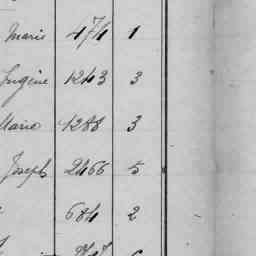 Marie 474 1
Eugène 1243 3
Marie 1288 3
Joseph 2466 5
684 2